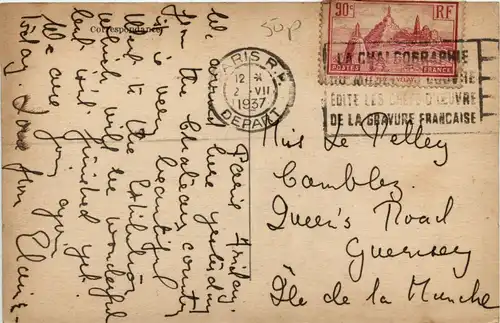 Correspondance
50p
90c RF
POSTES FRANCE
PARIS R.P.
12 H
2 - VII
1937
DEPART
LA CHALCOGRAPHIE
DU MUSÉE DU LOUVRE
ÉDITE LES CHEFS D'ŒUVRE
DE LA GRAVURE FRANCAISE
Paris Friday.
We arrived here yesterday
from the Chateaux country
it is very beautiful
went to the Exhibition
which will be wonderful
but isn't finished yet.
We are going again
today. Love from Claire -
Miss Le Pelley
Camblez
Queen's Road
Guernsey
Île de la Manche